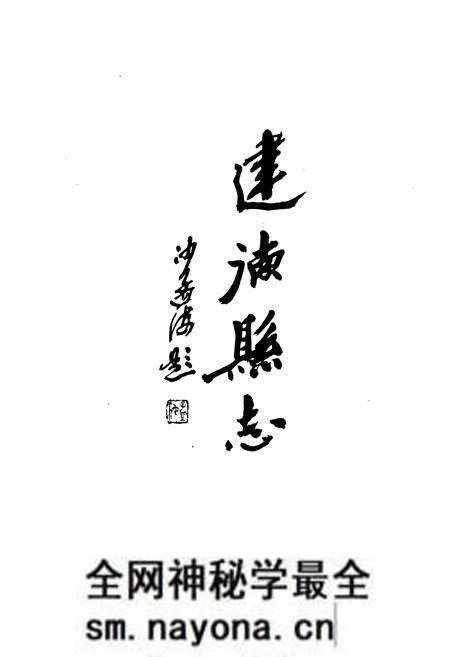 建德縣志
沙孟海题
全网神秘学最全
sm.nayona.cn